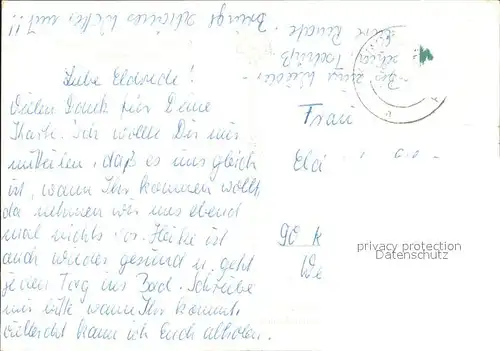 Liebe Eldriede!
Vielen Dank für Deine
Karte. Ich wollte Dir nur
mitteilen, daß es uns gleich
ist, wann Ihr kommen wollt,
da nehmen wir uns ebend
mal nichts vor. Heike ist
auch wieder gesund u. geht
jeden Tag ins Bad. Schreibe
mir bitte wann Ihr kommt,
vielleicht kann ich Euch abholen.
Bis zum Wieder-
sehen Tschüß
Eure Renate.
Bringt schönes Wetter mit!!
Frau
90 K
We
privacy protection